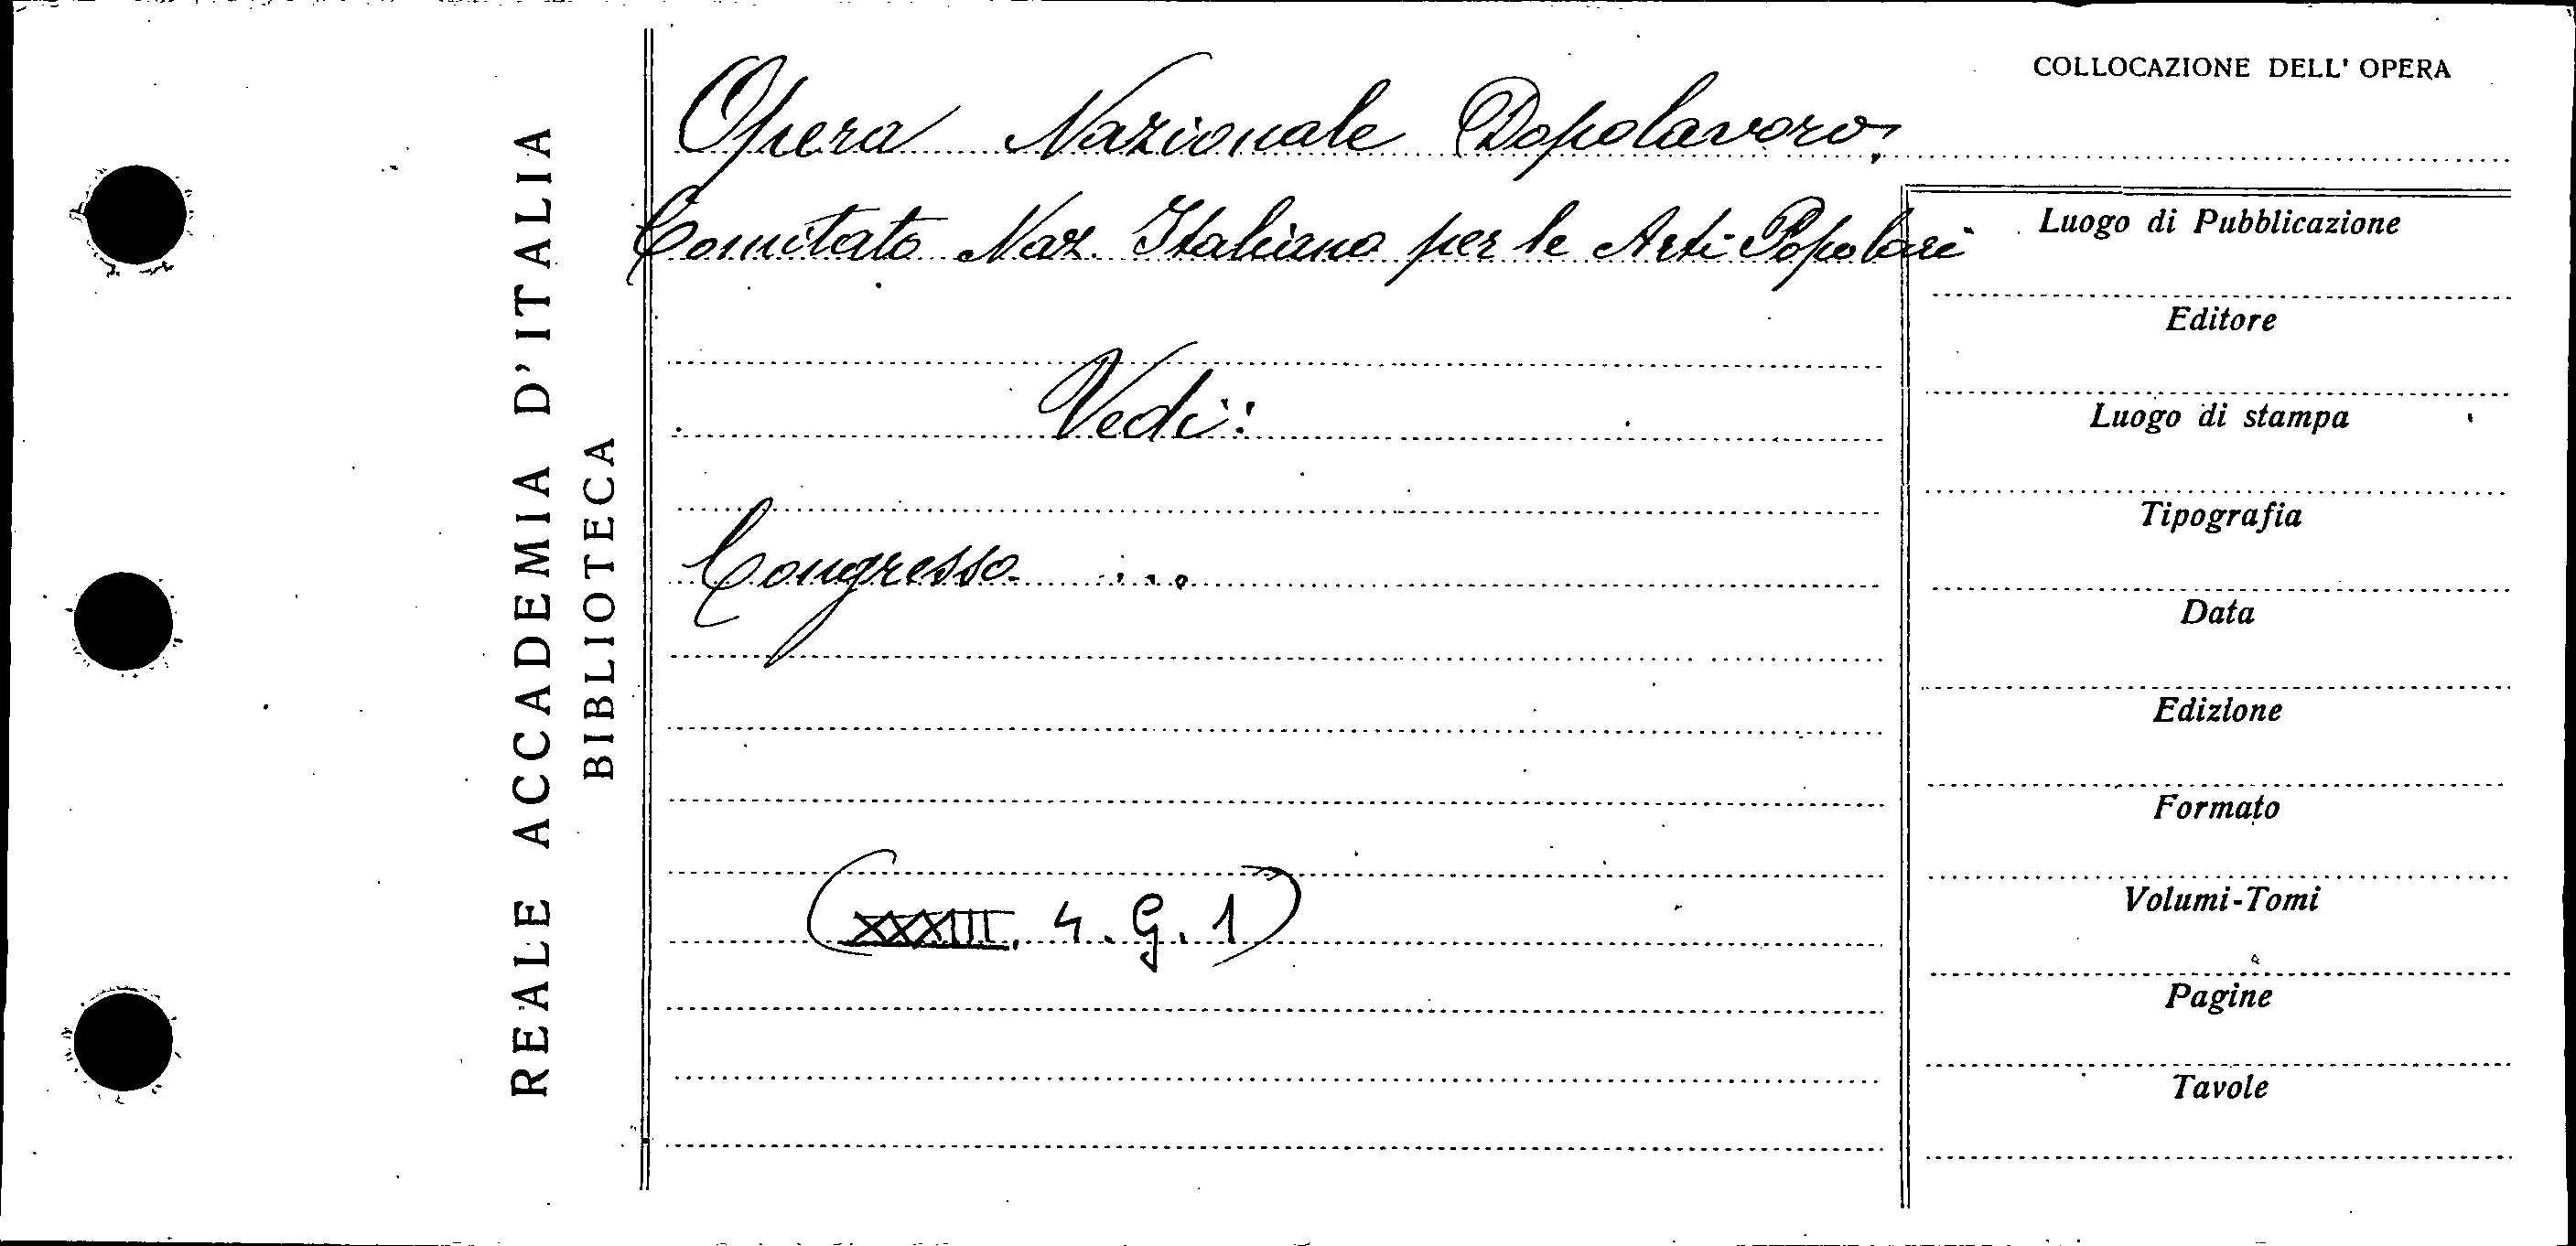 REALE ACCADEMIA D'ITALIA
BIBLIOTECA
COLLOCAZIONE DELL' OPERA
Opera Nazionale Dopolavoro.
Comitato Naz. Italiano per le Arti Popolari
Vedi:
Congresso ...
(XXXIII. 4. G. 1)
Luogo di Pubblicazione
Editore
Luogo di stampa
Tipografia
Data
Edizione
Formato
Volumi-Tomi
Pagine
Tavole